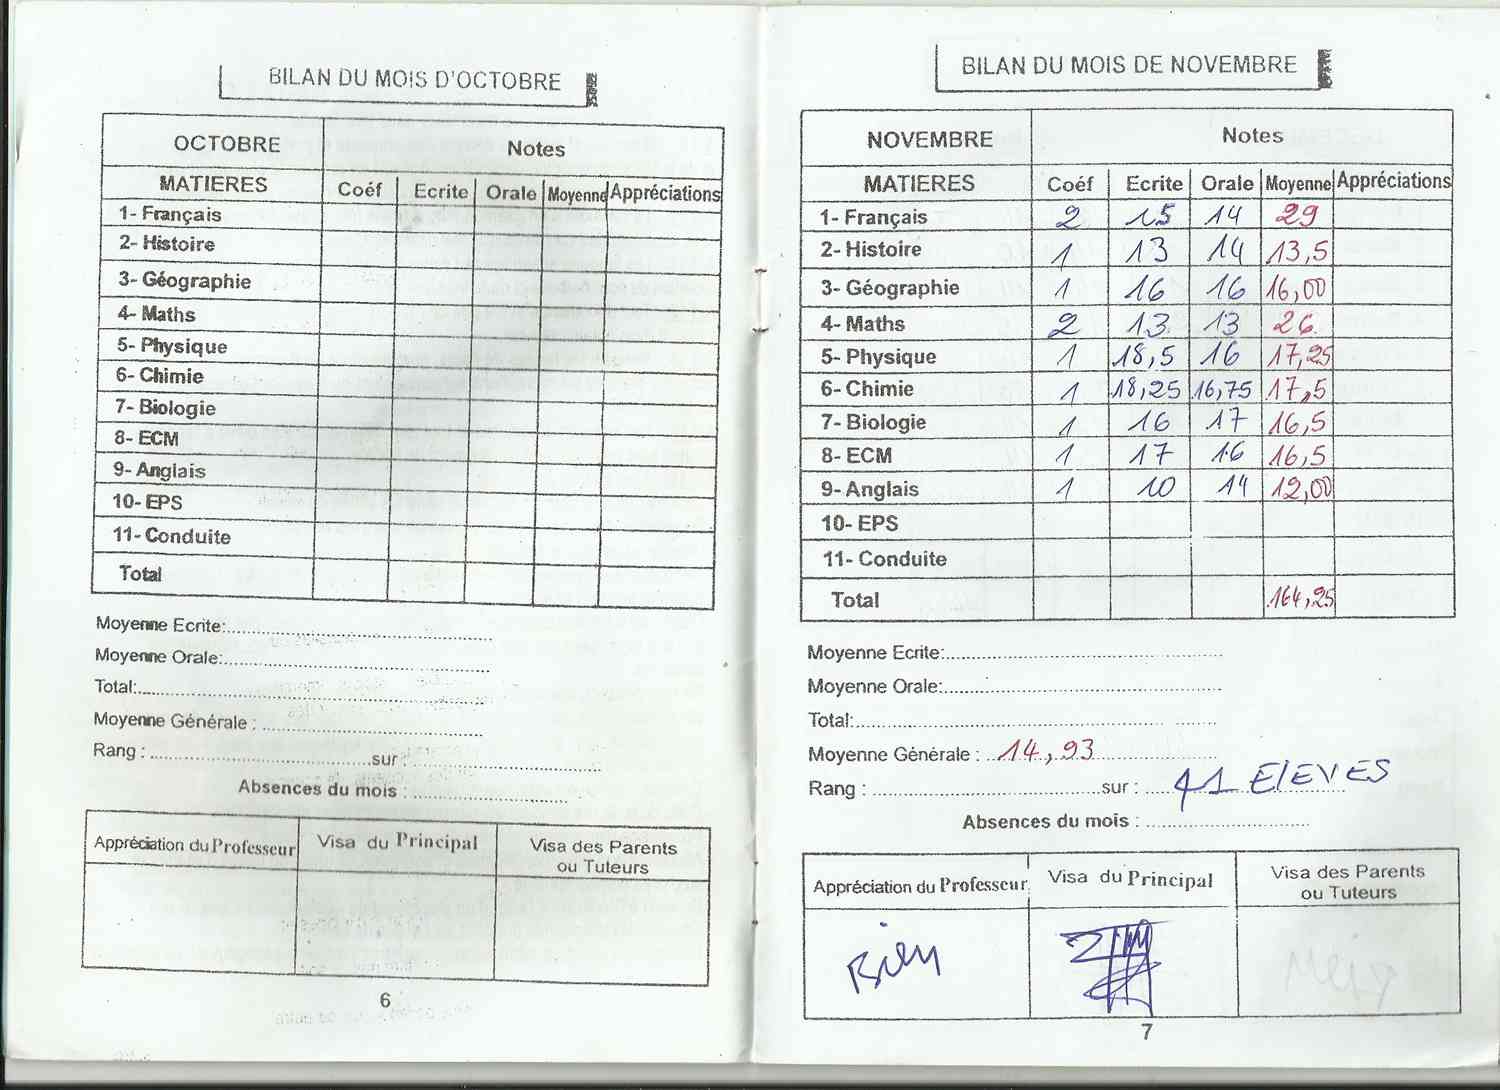 BILAN DU MOIS D'OCTOBRE
OCTOBRE Notes
MATIERES Coéf Ecrite Orale Moyenne Appréciations
1- Français
2- Histoire
3- Géographie
4- Maths
5- Physique
6- Chimie
7- Biologie
8- ECM
9- Anglais
10- EPS
11- Conduite
Total
Moyenne Ecrite:
Moyenne Orale:
Total:
Moyenne Générale :
Rang : sur :
Absences du mois :
Appréciation du Professeur Visa du Principal Visa des Parents ou Tuteurs
6
BILAN DU MOIS DE NOVEMBRE
NOVEMBRE Notes
MATIERES Coéf Ecrite Orale Moyenne Appréciations
1- Français 2 15 14 29
2- Histoire 1 13 14 13,5
3- Géographie 1 16 16 16,00
4- Maths 2 13 13 26
5- Physique 1 18,5 16 17,25
6- Chimie 1 18,25 16,75 17,5
7- Biologie 1 16 17 16,5
8- ECM 1 17 16 16,5
9- Anglais 1 10 14 12,00
10- EPS
11- Conduite
Total 164,25
Moyenne Ecrite:
Moyenne Orale:
Total:
Moyenne Générale : 14,93
Rang : sur : 41 ELEVES
Absences du mois :
Appréciation du Professeur Visa du Principal Visa des Parents ou Tuteurs
Bien
7